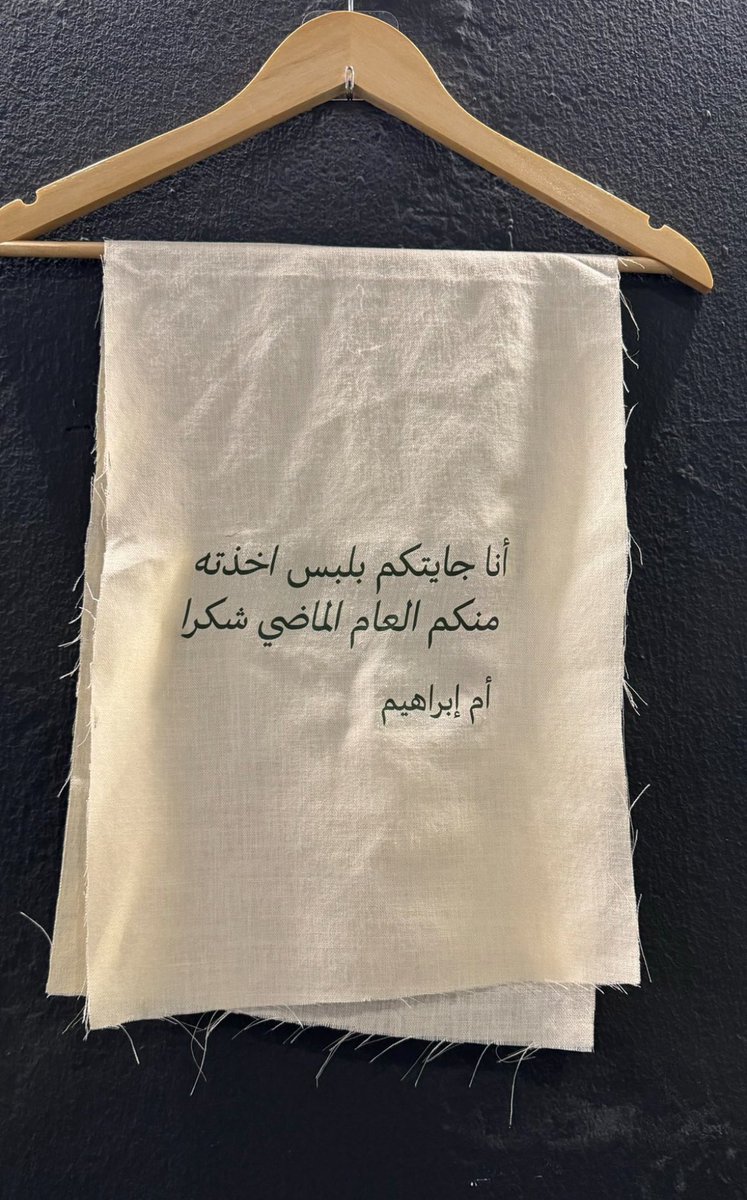 أنا جايتكم بلبس اخذته
منكم العام الماضي شكرا
أم إبراهيم